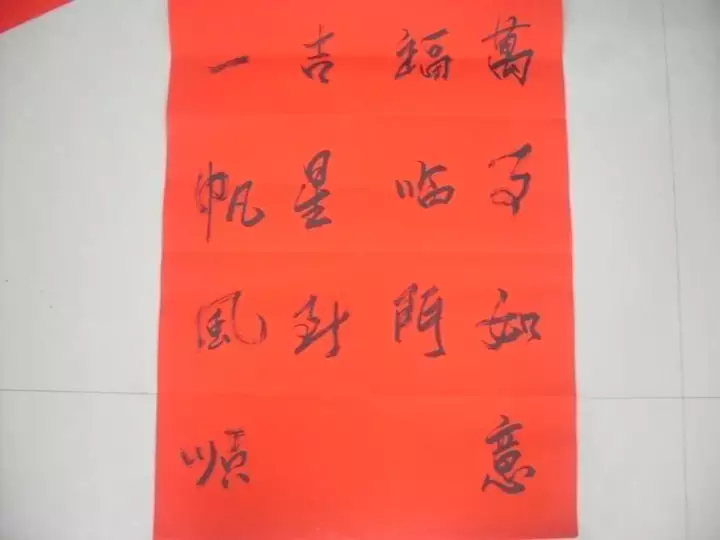 萬事如意
福临門
吉星到
一帆風順